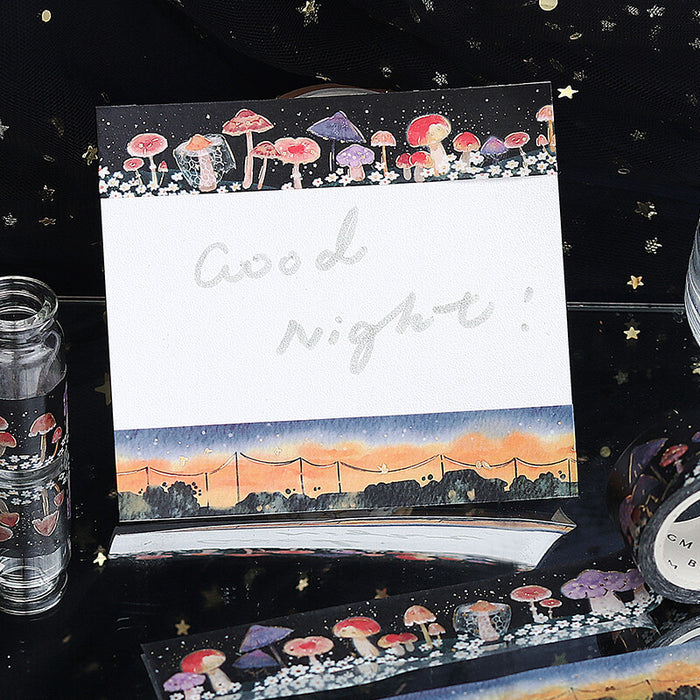 Good
Night!